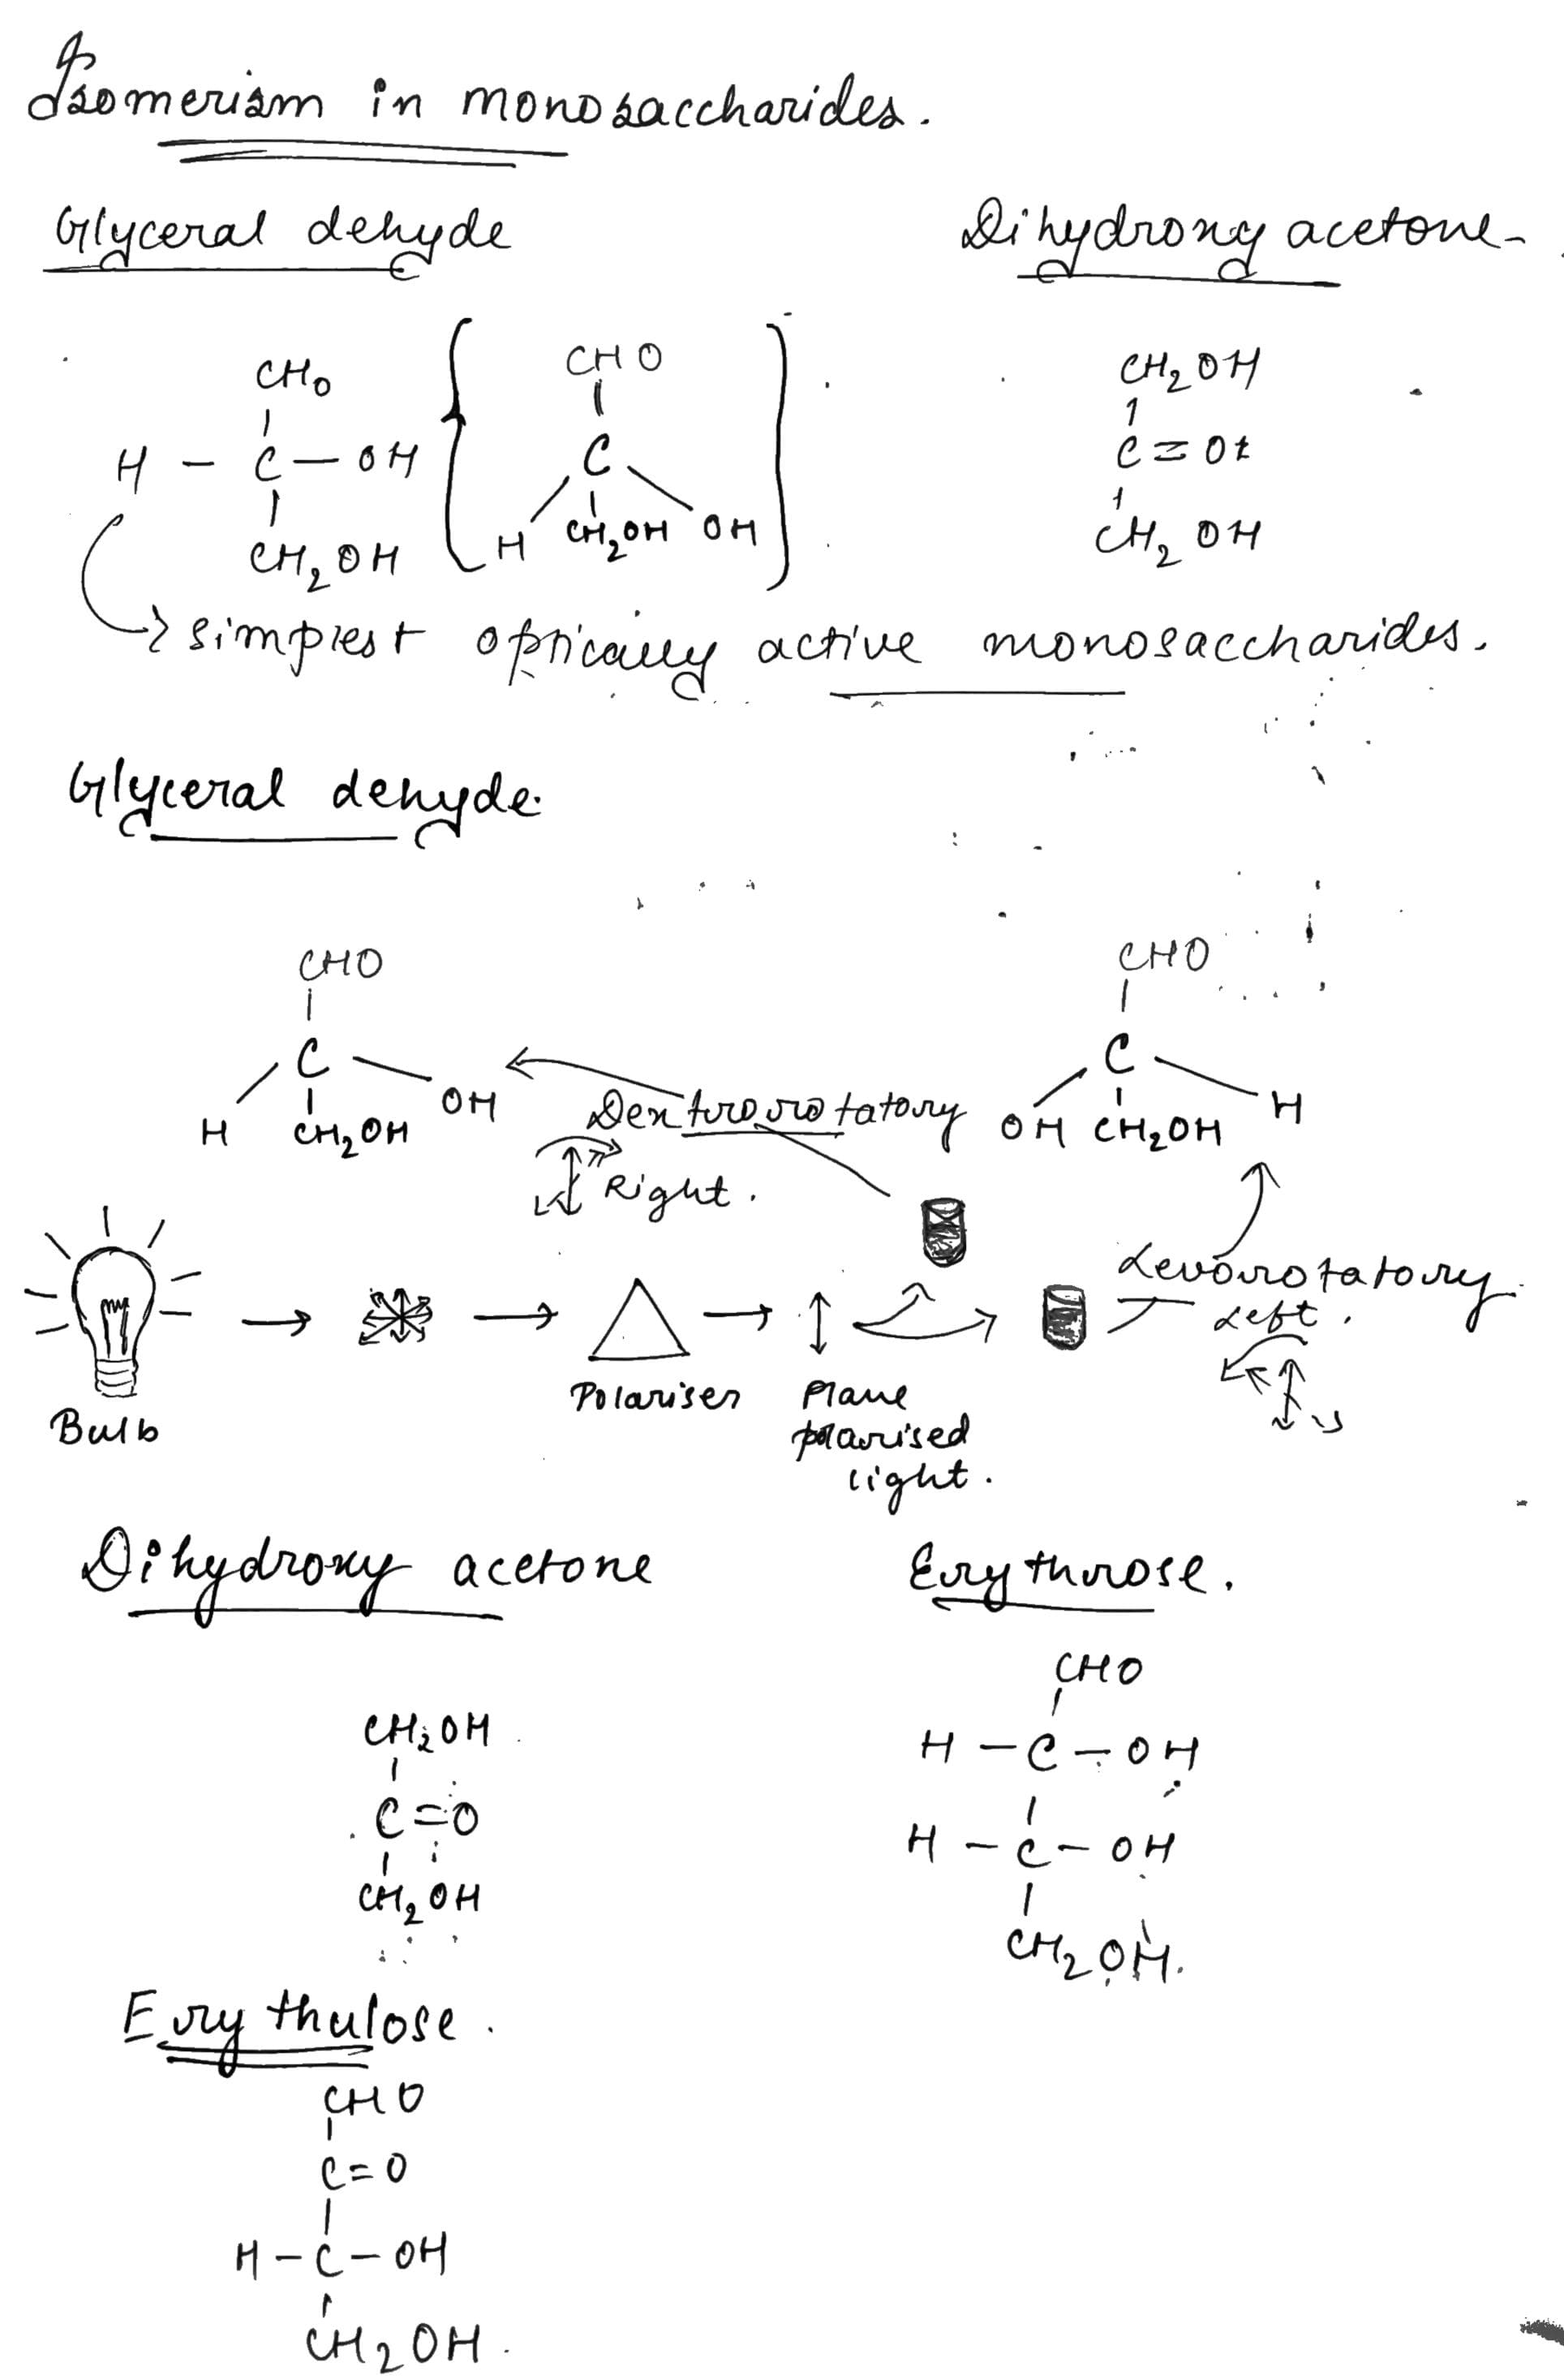 Isomerism in monosaccharides.
Glyceral dehyde
Dihydroxy acetone
CHO
H - C - OH
CH2OH
CHO
C
H CH2OH OH
CH2OH
C = O
CH2OH
simplest optically active monosaccharides.
Glyceral dehyde.
CHO
C
H CH2OH OH
Dextrorotatory
Right.
CHO
C
OH CH2OH H
Levorotatory
Left.
Bulb
Polariser
Plane
polarised
light.
Dihydroxy acetone
CH2OH
C=O
CH2OH
Erythrose.
CHO
H - C - OH
H - C - OH
CH2OH.
Erythulose.
CHO
C=O
H - C - OH
CH2OH.